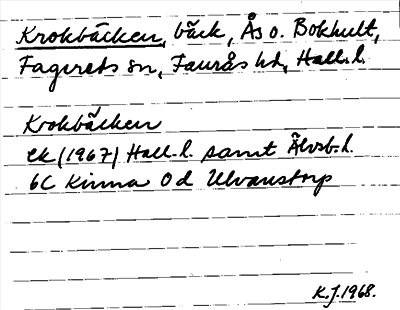 Krokbäcken, bäck, Ås o. Bokhult,
Fagereds sn, Faurås hd, Hall. l.
Krokbäcken
ek (1967) Hall. l. samt Älvsb. l.
6C Kinna 0d Ulvanstorp
K.J. 1968.